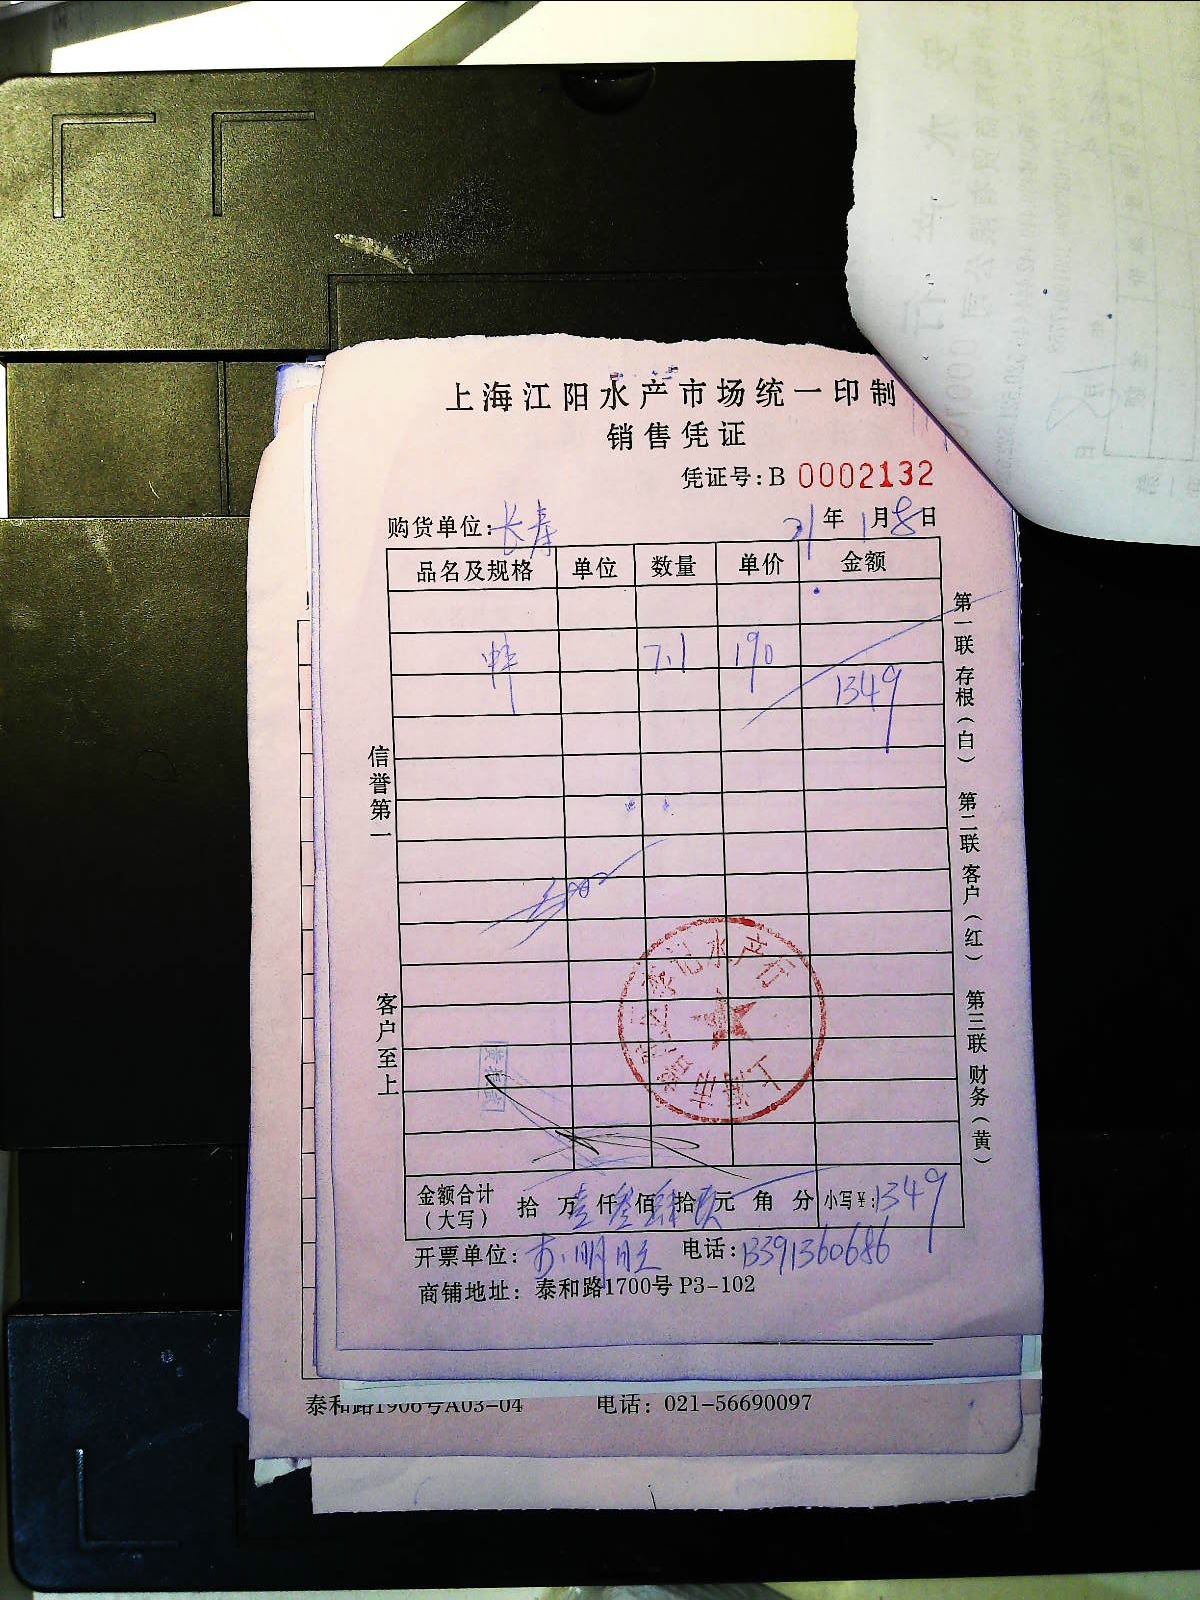 上海江阳水产市场统一印制
销售凭证
凭证号：B 0002132
购货单位：长寿 21年1月8日
品名及规格 单位 数量 单价 金额
7.1 190
1349
信誉第一
客户至上
第一联 存根（白） 第二联 客户（红） 第三联 财务（黄）
水产行
上海市
金额合计（大写） 拾 万壹仟叁佰肆拾玖元 角 分 小写￥：1349
开票单位： 电话：13391360686
商铺地址：泰和路1700号 P3-102
泰和路1906号A03-04 电话：021-56690097